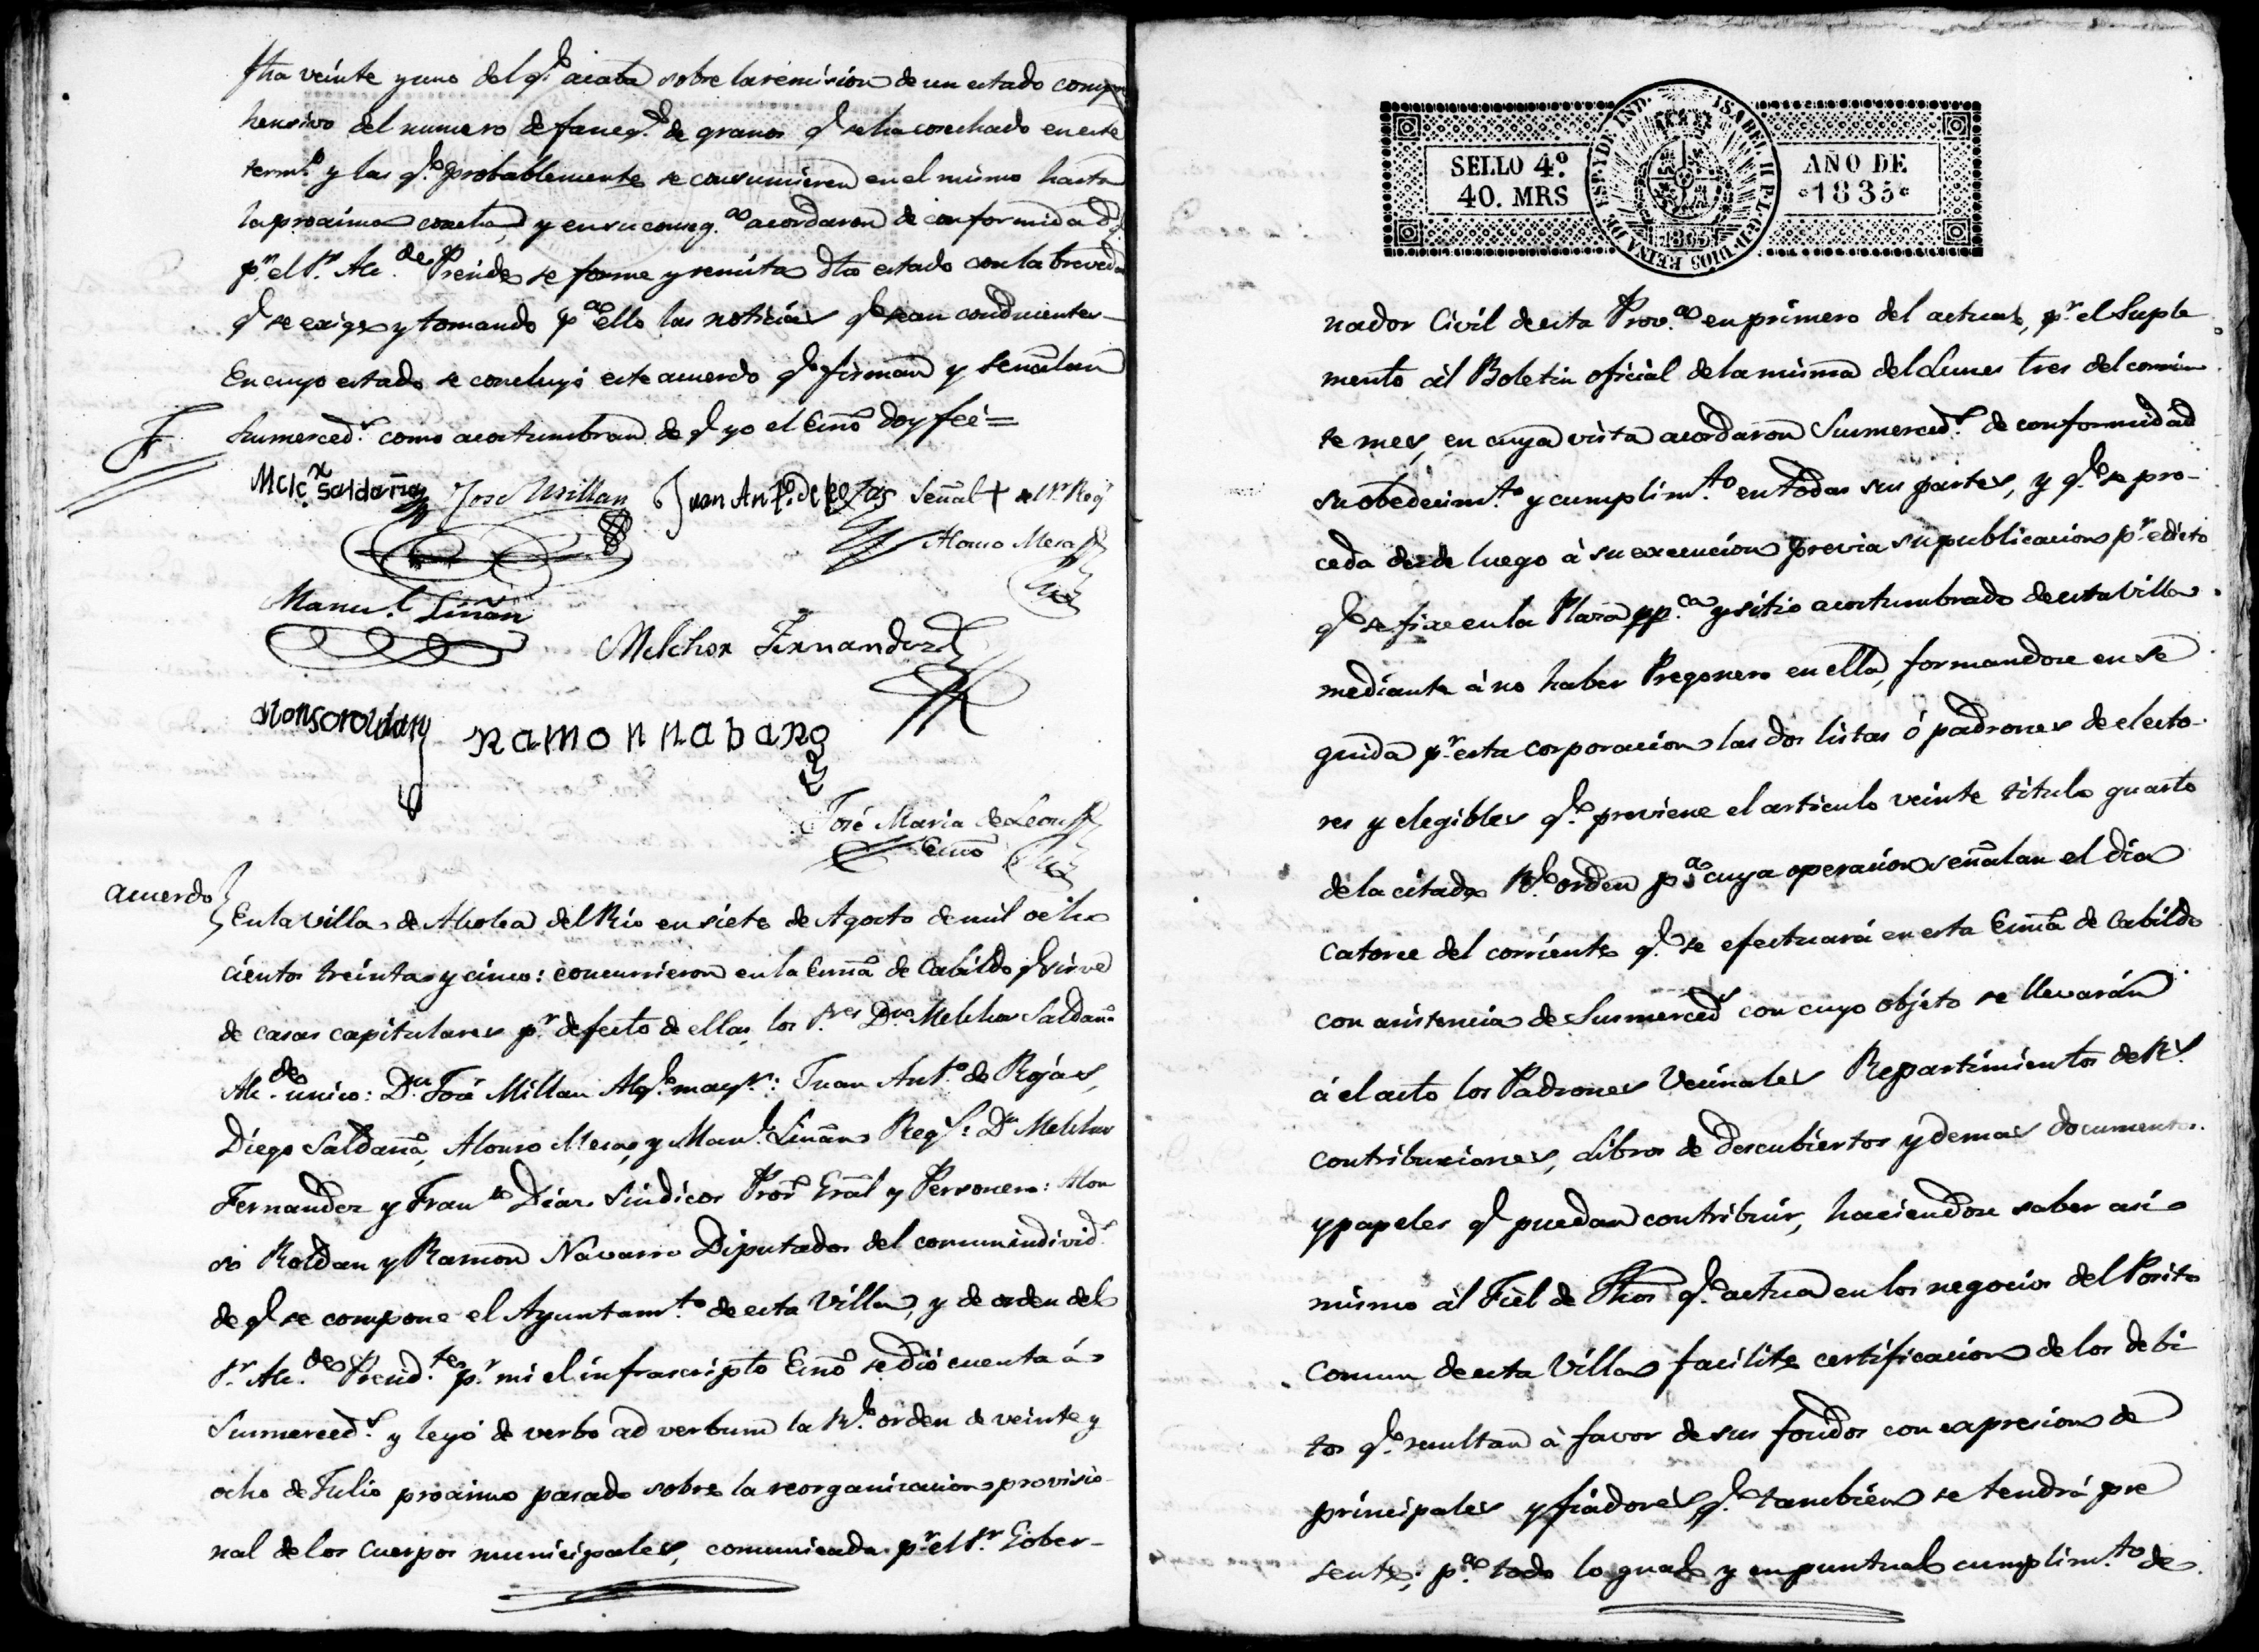 fha veinte y uno del q.e acaba sobre la remision de un estado compre
hensivo del numero de faneg.s de granos q.e se ha cosechado en este
term.o y las q.e probablemente se consumieren en el mismo hasta
la proxima cosecha, y en su conseq.a acordaron de conformidad q.e
p.r el S.r Alc.de Preside se forme y remita dho estado con la brevedad
q.e se exige y tomando p.a ello las noticias q.e sean conducientes
En cuyo estado se concluyó este acuerdo q.e firman y señalan
Sus merced.s como acostumbran de q.e yo el Esno doy feé=
Melc.r Saldaña José Millan Juan Ant.o de Rojas Señal + del Sr. Reg.r
Alonso Mesa
Manu.l Liñan
Melchor Fernandez
alonso roldan ramon nabaro
José Maria de Leon
Esno
acuerdo
En la villa de Alcolea del Rio en siete de Agosto de mil ocho
cientos treinta y cinco: concurrieron en la Essna de Cabildo q.e sirve
de casas capitulares p.r defecto de ellas, los S.res Dn. Melchor Saldaña
Alc.de unico: Dn. José Millan Alg.l may.r: Juan Ant.o de Rojas,
Diego Saldaña, Alonso Mesa, y Man.l Liñan Reg.s: Dn Melchor
Fernandez y Fran.co Diaz Sindicos Pror Gral y Personero: Alon
so Roldan y Ramon Navarro Diputados del comun individ.s
de q.e se compone el Ayuntam.to de esta Villa, y de orden del
S.r Alc.de Presid.te p.r mi el infrascripto Esno se dió cuenta á
Sus merced.s y leyó de verbo ad verbum la R.l orden de veinte y
ocho de Julio proximo pasado sobre la reorganizacion provisio
nal de los cuerpos municipales, comunicada p.r el S.r Gober-
SELLO 4.o
40. MRS
ISABEL II P.L.G.D DIOS REINA DE ESP. Y DE IND.
1835
AÑO DE
1835
nador Civil de esta Prov.a en primero del actual, p.r el Suple
mento ál Boletin oficial de la misma del Lunes tres del corrien
te mes, en cuya vista acordaron Sus merced.s de conformidad
su obedecim.to y cumplim.to en todas sus partes, y q.e se pro-
ceda desde luego á su execucion previa su publicacion p.r edicto
q.e se fixe en la Plaza pp.ca y sitio acostumbrado de esta Villa
mediante á no haber Pregonero en ella, formandose en se
guida p.r esta corporacion las dos listas ó padrones de electo-
res y elegibles q.e previene el articulo veinte titulo quarto
de la citada R.l orden p.a cuya operacion señalan el dia
catorce del corriente q.e se efectuará en esta Essna de Cabildo
con asistencia de Sus merced.s con cuyo objeto se llevarán
á el acto los Padrones Vecinales Repartimientos de R.s
contribuciones, Libros de descubiertos y demas documentos
y papeles q.e puedan contribuir, haciendose saber asi
mismo ál Fiel de Fhos q.e actua en los negocios del Posito
comun de esta Villa facilite certificacion de los debi
tos q.e resultan á favor de sus fondos con expresion de
principales y fiadores q.e tambien se tendrá pre
sente; p.a todo lo qual y en puntual cumplim.to de